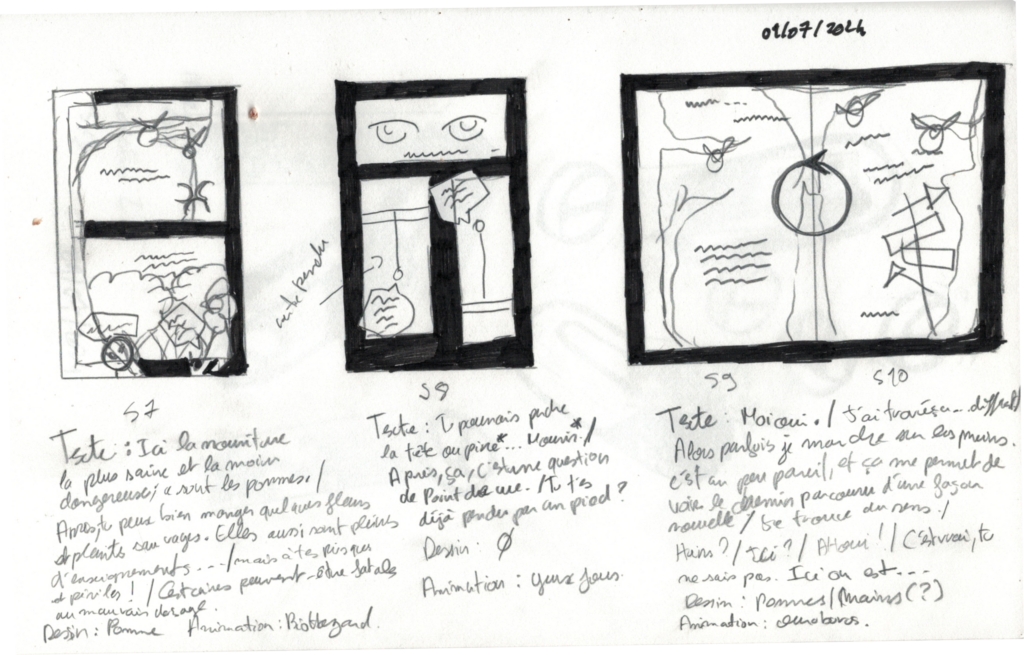 01/07/2024
S7
Texte : Ici la nourriture
la plus saine et la moin
dangereuse, ce sont les pommes. /
Après, tu peux bien manger quelques fleurs
et plants sauvages. Elles aussi sont pleines
d'enseignements... / mais à tes risques
et périls ! / Certaines peuvent-être fatales
au mauvais dosage.
Dessin : Pomme Animation : Biohazard.
S8
Texte : Tu pourrais perdre
la tête ou pire*... Mourir* /
Après, ça, c'est une question
de Point de vue. / Tu t'es
déjà pendu par un pied ?
Dessin : Ø
Animation : yeux fous.
S9 S10
Texte : Moi oui. / J'ai trouvé ça... difficile /
Alors parfois je marche sur les mains.
c'est un peu pareil, et ça me permet de
voir le chemin parcouru d'une façon
nouvelle / Je trouve du sens. /
Hains ? / Ici ? / Ah oui ! / C'est vrai, tu
ne sais pas. Ici on est....
Dessin : Pommes / Mains (?)
Animation : ouroboros.